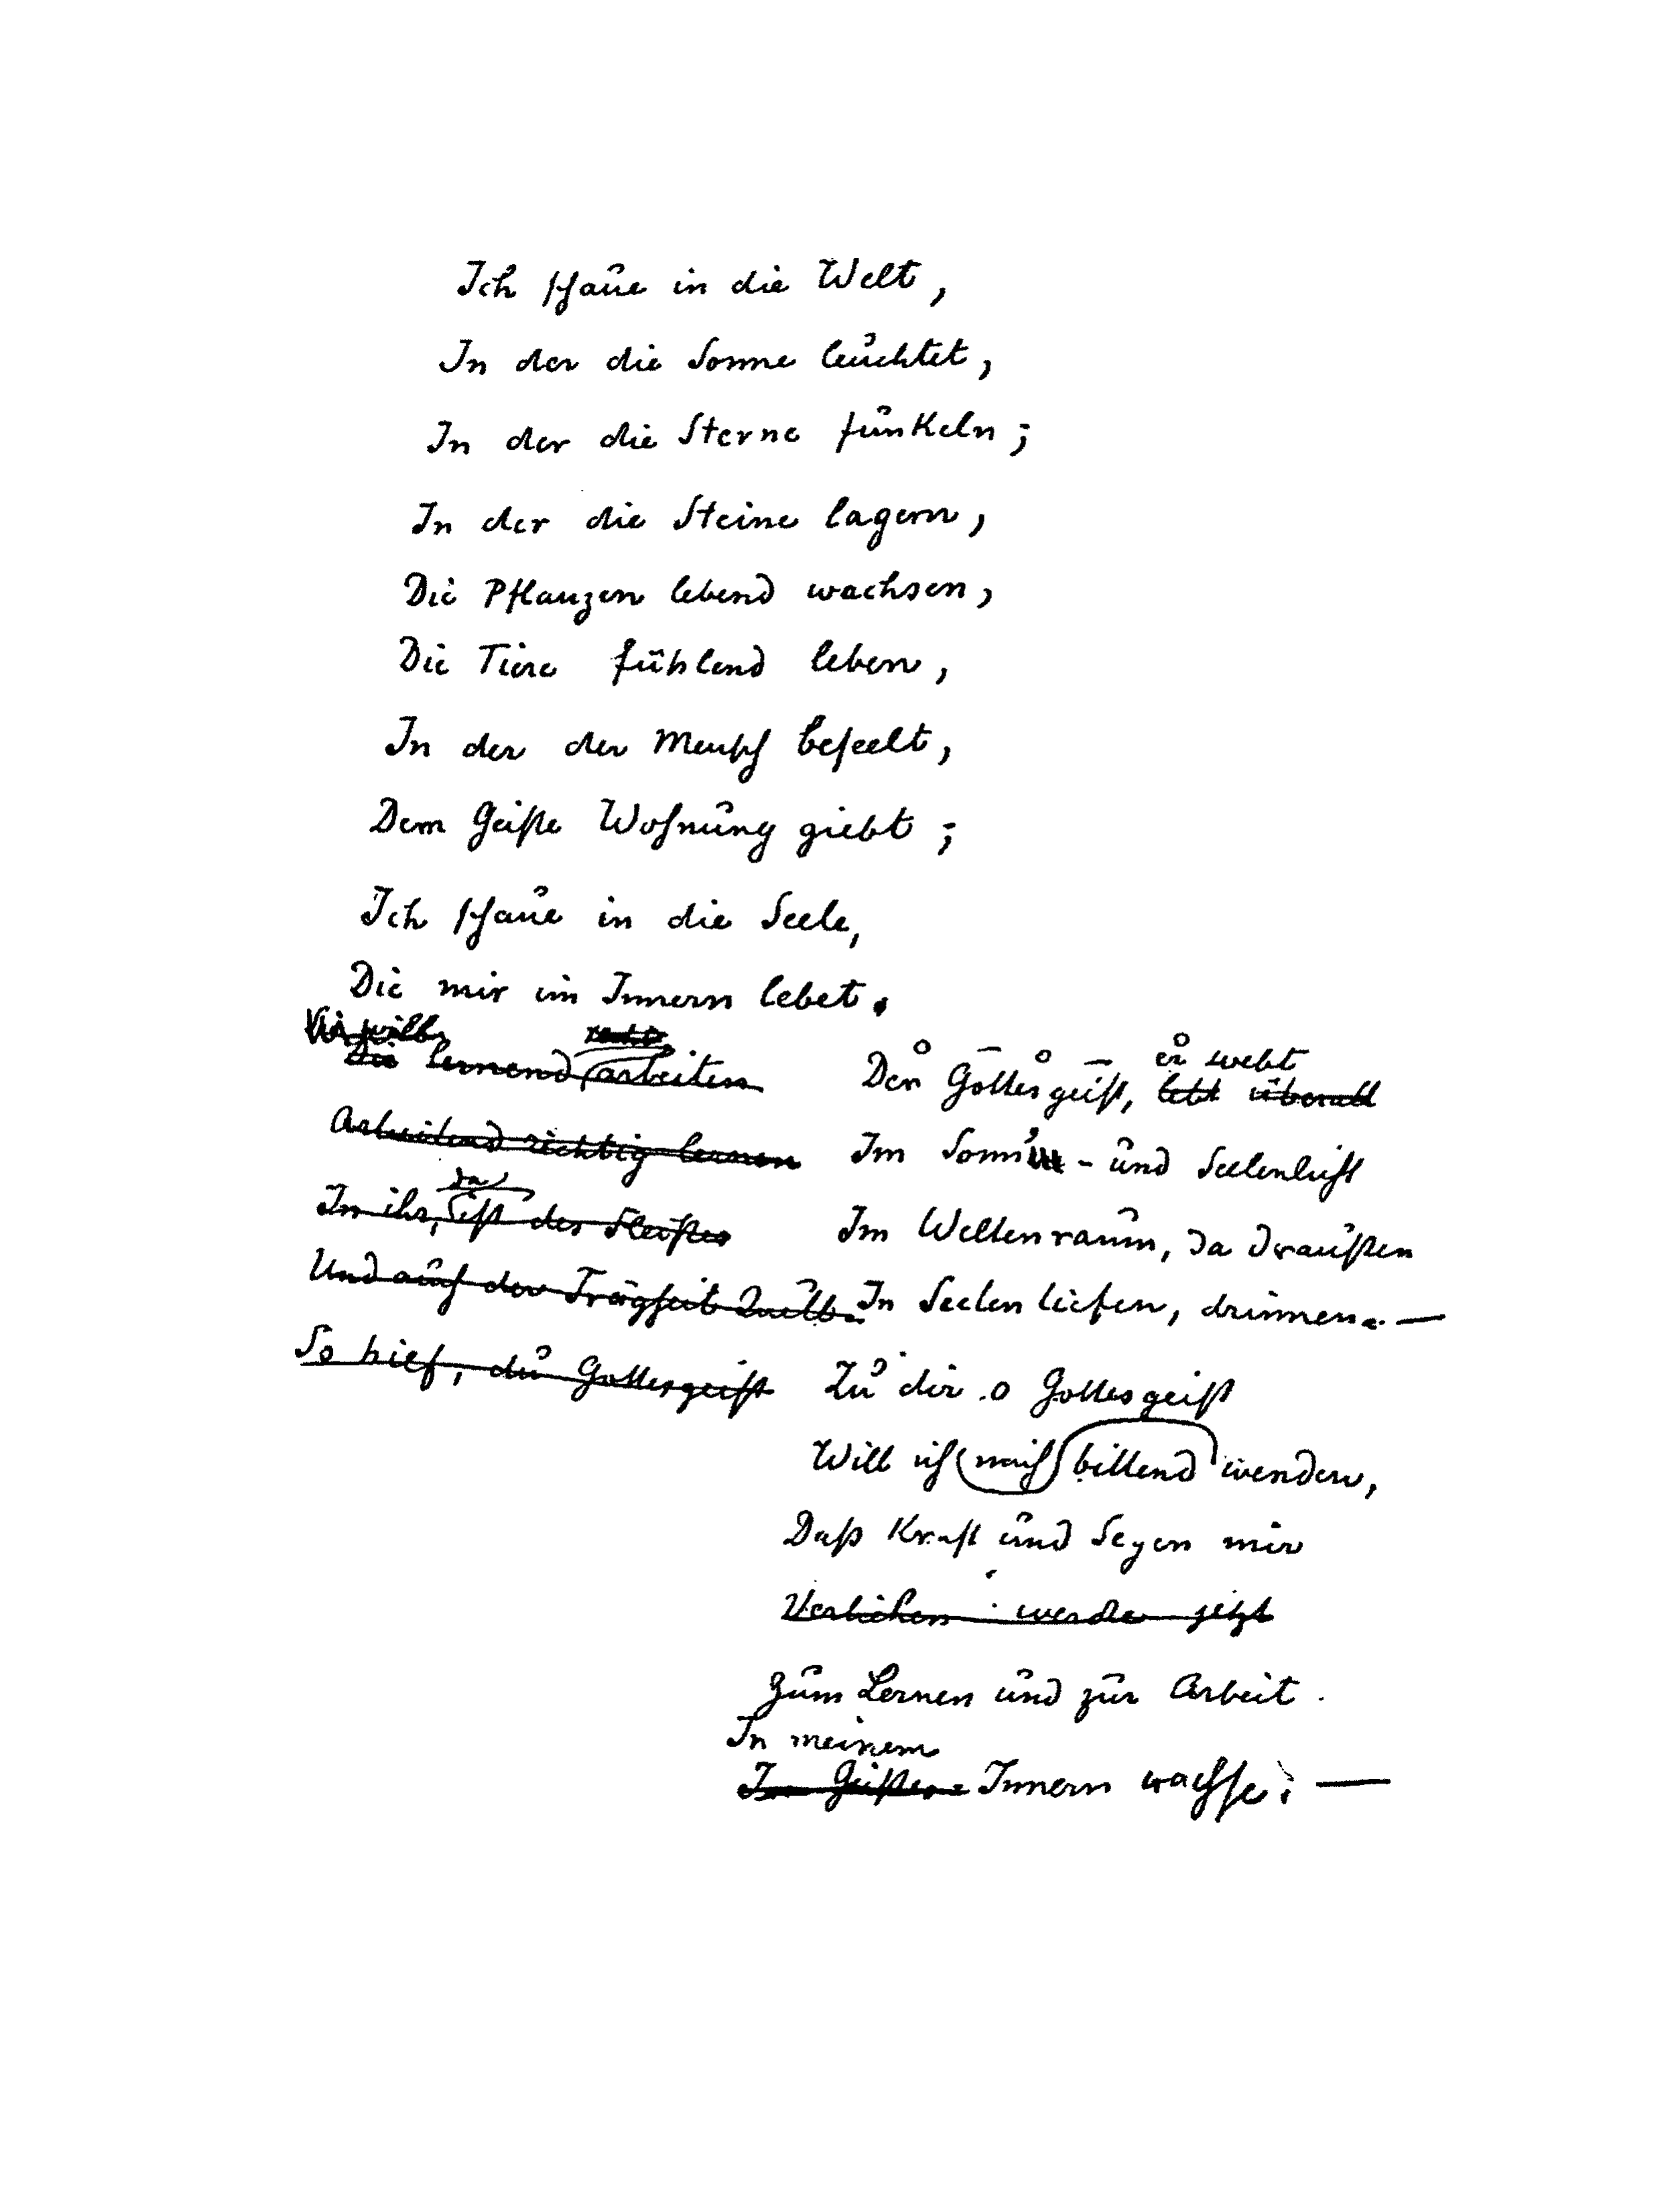 Ich schaue in die Welt,
In der die Sonne leuchtet,
In der die Sterne funkeln;
In der die Steine lagern,
Die Pflanzen lebend wachsen,
Die Tiere fühlend leben,
In der der Mensch beseelt,
Dem Geiste Wohnung giebt;
Ich schaue in die Seele,
Die mir im Innern lebet.
will
Die lernend arbeiten
Arbeitend richtig lernen
da
In ihr, ist des Fleißes
Und auch der Trägheit Quelle
So hilf, du Gottesgeist
er webt
Der Gottesgeist, lebt überall
Im Sonn' - und Seelenlicht
Im Weltenraum, da draußen
In Seelentiefen, drinnen. —
Zu dir o Gottesgeist
Will ich mich bittend wenden,
Daß Kraft und Segen mir
Verliehen werde jetzt
Zum Lernen und zur Arbeit.
In meinem
Innern wachse: —